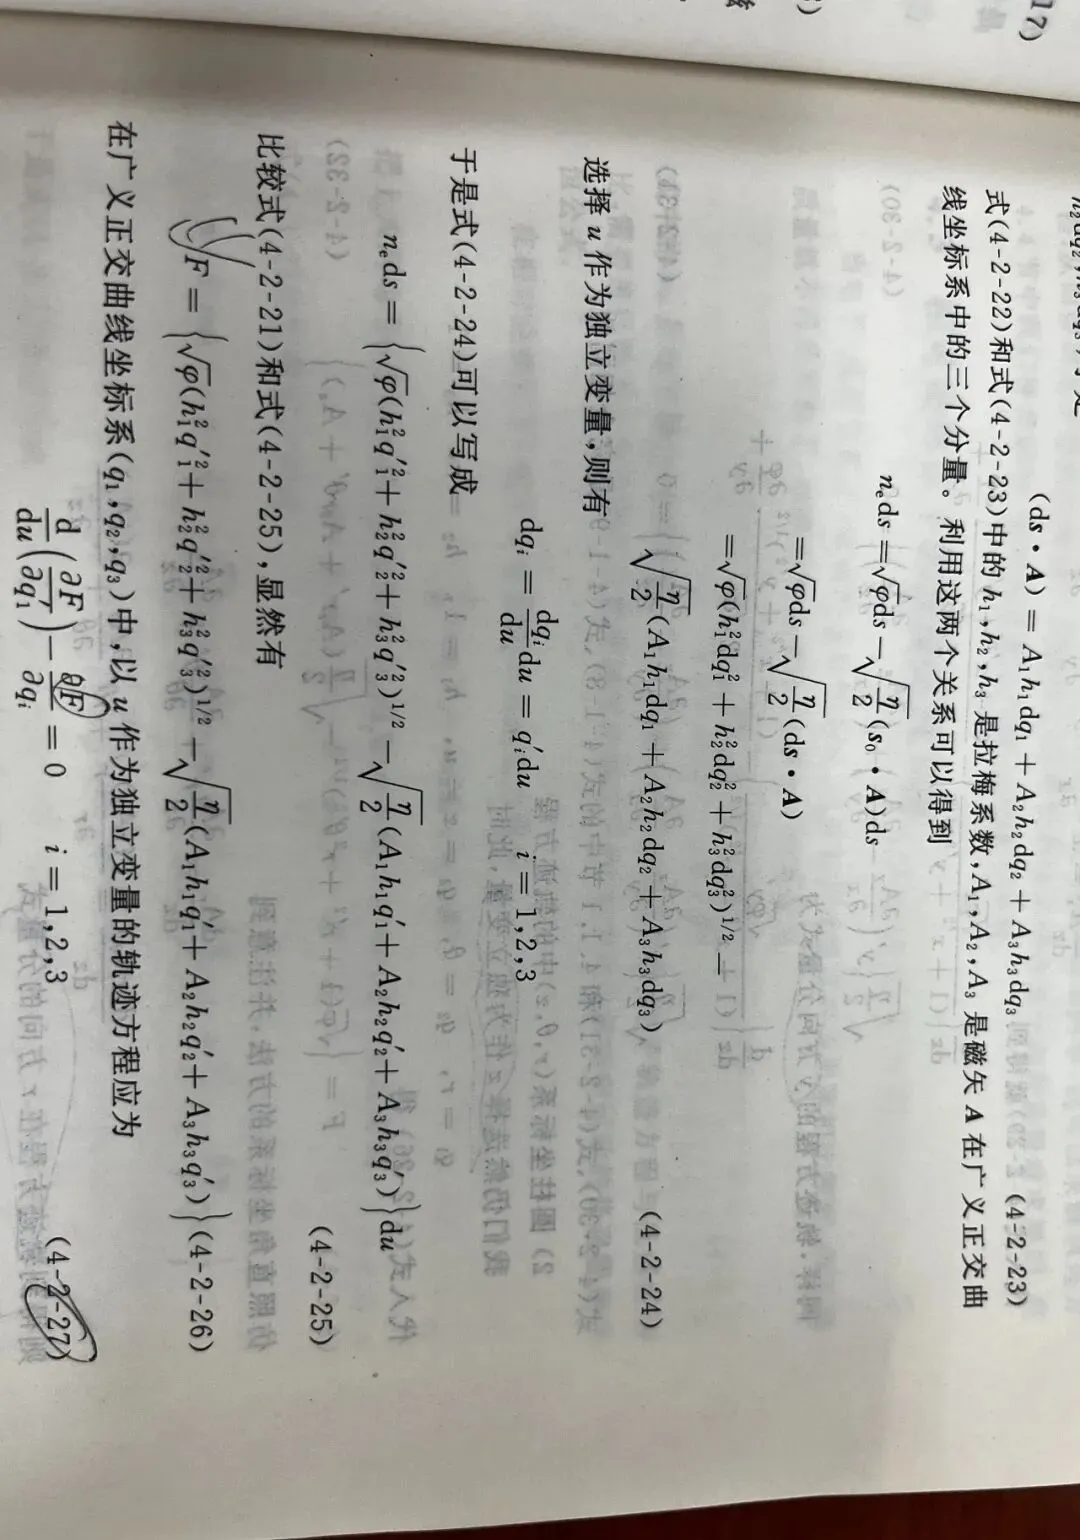 17)
(ds·A) = A₁h₁dq₁ + A₂h₂dq₂ + A₃h₃dq₃ (4-2-23)
式(4-2-22)和式(4-2-23)中的 h₁,h₂,h₃ 是拉梅系数,A₁,A₂,A₃ 是磁矢 A 在广义正交曲
线坐标系中的三个分量。利用这两个关系可以得到
nₑds = √φds − √(η/2)(s₀·A)ds
= √φds − √(η/2)(ds·A)
= √φ(h₁²dq₁² + h₂²dq₂² + h₃²dq₃²)^(1/2) −
√(η/2)(A₁h₁dq₁ + A₂h₂dq₂ + A₃h₃dq₃) (4-2-24)
选择 u 作为独立变量,则有
dqᵢ = (dqᵢ/du)du = qᵢ′du i = 1,2,3
于是式(4-2-24)可以写成
nₑds = {√φ(h₁²q₁′² + h₂²q₂′² + h₃²q₃′²)^(1/2) − √(η/2)(A₁h₁q₁′ + A₂h₂q₂′ + A₃h₃q₃′)}du
(4-2-25)
比较式(4-2-21)和式(4-2-25),显然有
F = {√φ(h₁²q₁′² + h₂²q₂′² + h₃²q₃′²)^(1/2) − √(η/2)(A₁h₁q₁′ + A₂h₂q₂′ + A₃h₃q₃′)} (4-2-26)
在广义正交曲线坐标系(q₁,q₂,q₃)中,以 u 作为独立变量的轨迹方程应为
d/du(∂F/∂q₁′) − ∂F/∂qᵢ = 0 i = 1,2,3 (4-2-27)